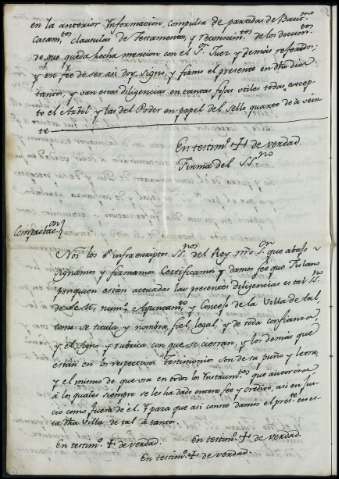 en la anterior Informacion, compulsa de partidas de Bautmos
Casamtos clausulas de Testamentos, y reconocimtos de los documtos
de que queda hecha mencion con el Sr Juez y demas referido;
y en fee de ser asi doy, signo, y firmo el presente en dho dia
tanto, y con otras diligencias en tantas fojas utiles todas, excep
to el Auto y las del Poder en papel del Sello quarto de a vein
te
En testimo + de verdad
Firma del SSno
Comprobacon
Nos los infraescriptos SSnos del Rey nro Sr que abajo
signamos y firmamos Certificamos y damos fee que Fulano
por quien estan actuadas las presentes diligencias es tal SSno
de S. M. numo Ayuntamto y Concejo de la Villa de tal
como se titula y nombra, fiel, legal y de toda confianza
y el signo y rubrica con que se cierran, y los demas que
estan en los respectivos testimonios son de su puño y letra
y el mismo de que usa en todos los Instrumtos que autoriza
á los quales siempre se les ha dado entera fee y credito, asi en jui
cio como fuera de él. Y para que asi conste damos el presente en es
ta dha Villa de tal á tantos.
En testimo + de verdad. En testimo + de verdad
En testimo + de verdad.